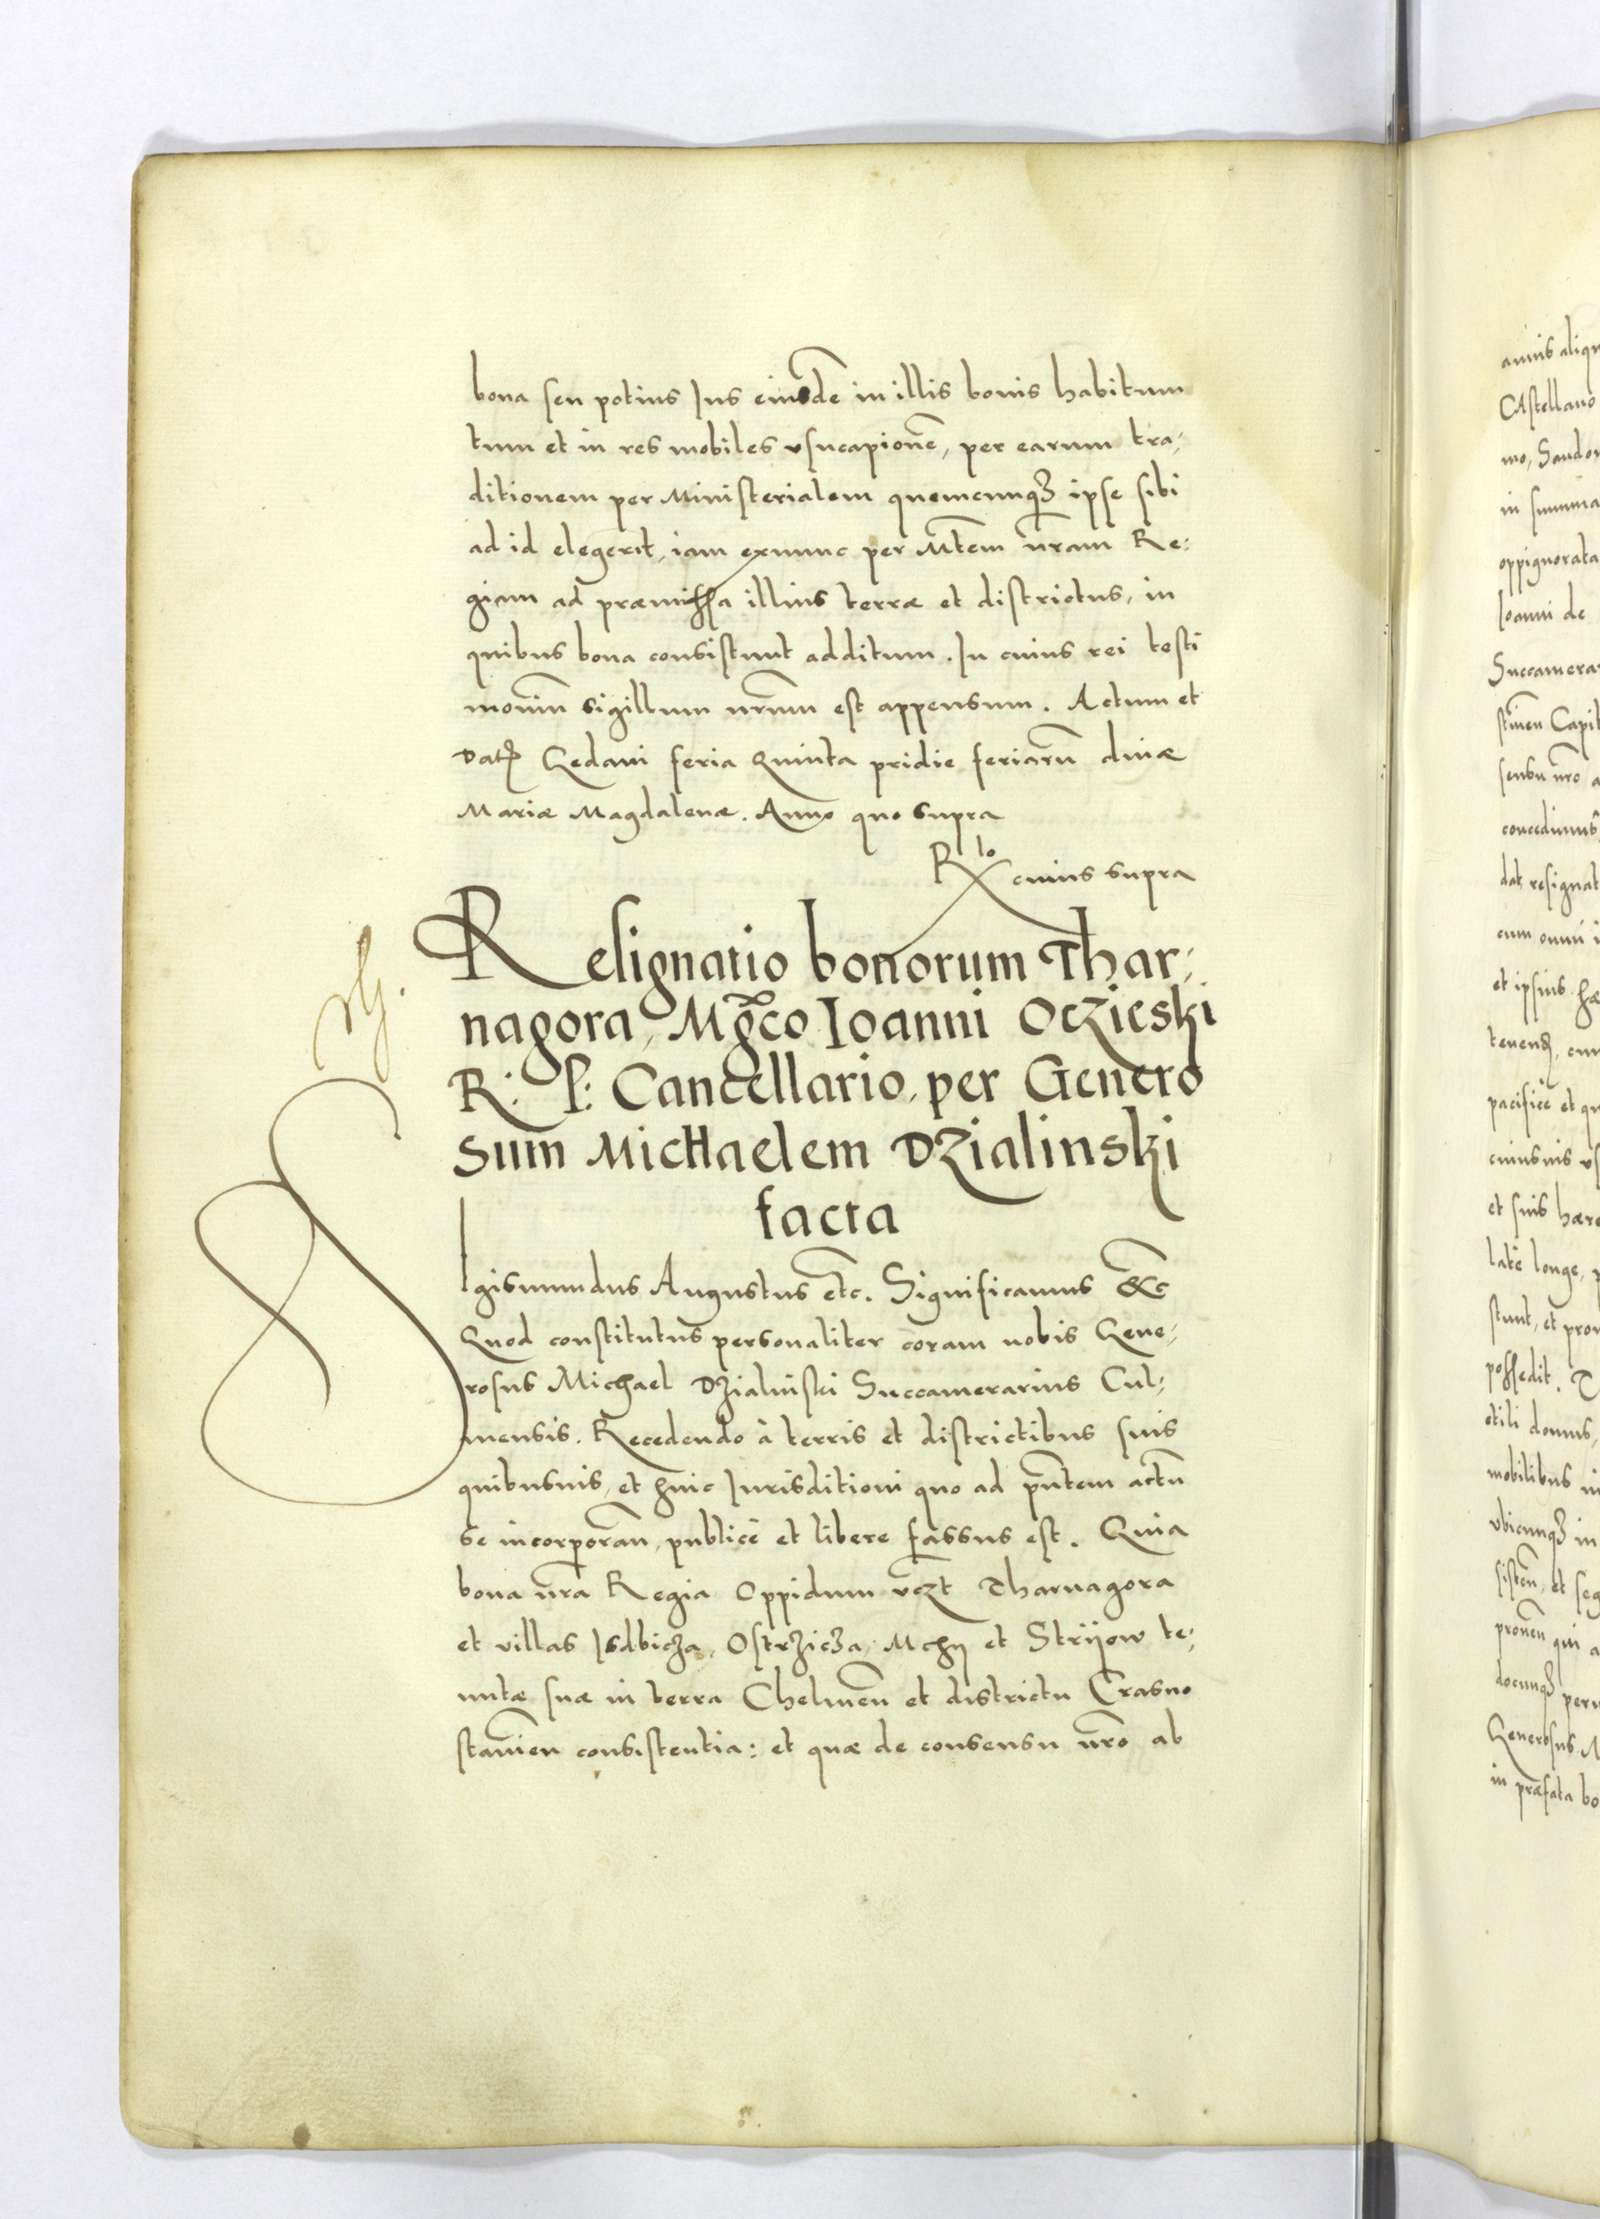 bona seu potius Ius eiusdē in illis bonis habitum
tum et in res mobiles vsucapionē, per earum tra⸗
ditionem per Ministerialem quemcunqꝫ ipse sibi
ad id elegerit, iam exnunc per Mtem nr̄am Re⸗
giam ad præmissa illius terræ et districtus, in
quibus bona consistunt additum. In cuius rei testi
moniū sigillum nr̄um est appensum. Actum et
Datꝫ Gedani feria Quinta pridie feriarū diuæ
Mariæ Magdalenæ. Anno quo supra
Rlo cuius supra
Resignatio bonorum Thar⸗
nagora, Mgco Ioanni Oczieski
R: P: Cancellario, per Genero
sum Michaelem Dzialinski
facta
SIgismundus Augustus etc. Significamus &c
Quod constitutus personaliter coram nobis Gene⸗
rosus Michael Dzialinski Succamerarius Cul⸗
mensis. Recedendo à terris et districtibus suis
quibusuis, et huic Iurisditioni quo ad pn̄tem actū
se incorporan̄, publicè et libere fassus est. Quia
bona nr̄a Regia Oppidum vczt Tharnagora
et villas Isdbicza, Ostrzicza, Mchÿ et Strijow te⸗
nutæ suæ in terra Chelmen̄ et districtu Crasno
stawien̄ consistentia: et quæ de consensu nr̄o ab
annis aliq
CAstellano
mo, Sando
in summa
oppignorata
Ioanni de
Succamera
stawien Capit
sensu nr̄o a
concedimus
dat resignat
cum omni i
et ipsius hæ
tenendꝫ, cum
pacificè et qu
cuiusuis vs
et suis hære
latè longe,
stunt, et prou
possedit. 
mobilibus in
vbicunqꝫ in
sisten̄, et seq
prouen̄ qui a
docunqꝫ peru
Generosus M
in præfata bo